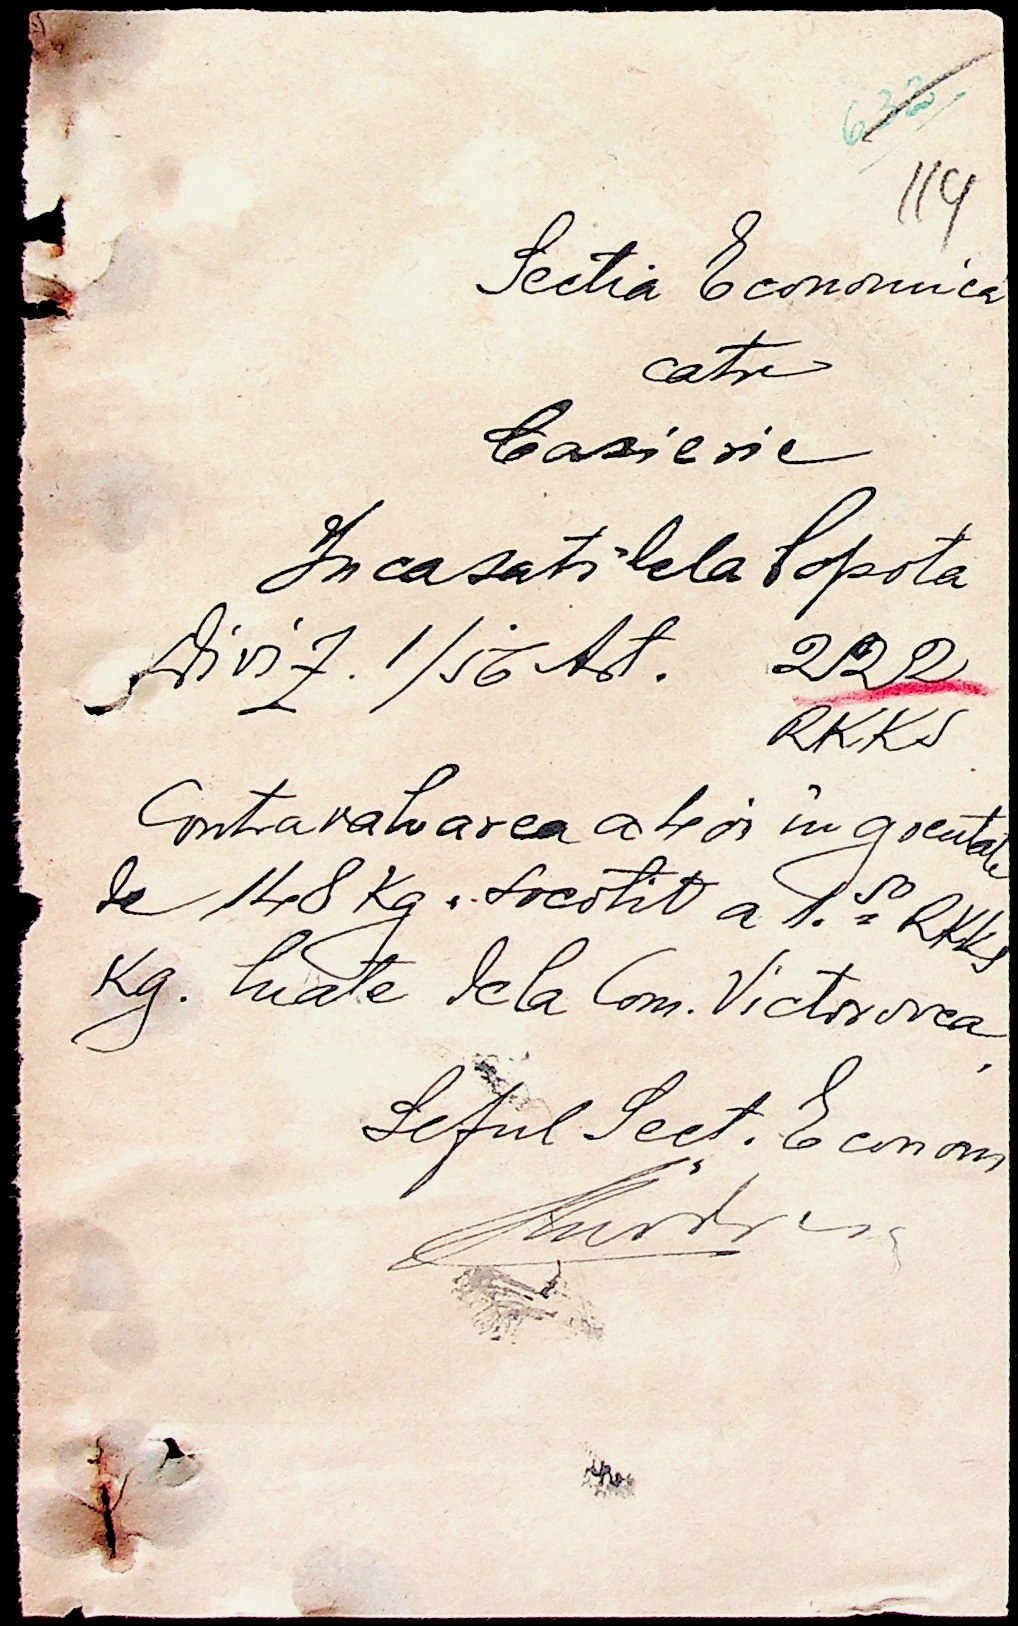 114
Sectia Economica
catre
Casierie
Incasati dela Popota
Diviz. 1/56 Art. 222
RKKS
Contravaluarea a 4 oi in greutate
de 148 Kg. socotit a 1.50 RKKS
Kg. luate dela Com. Victorovca
Seful Sect. Econom